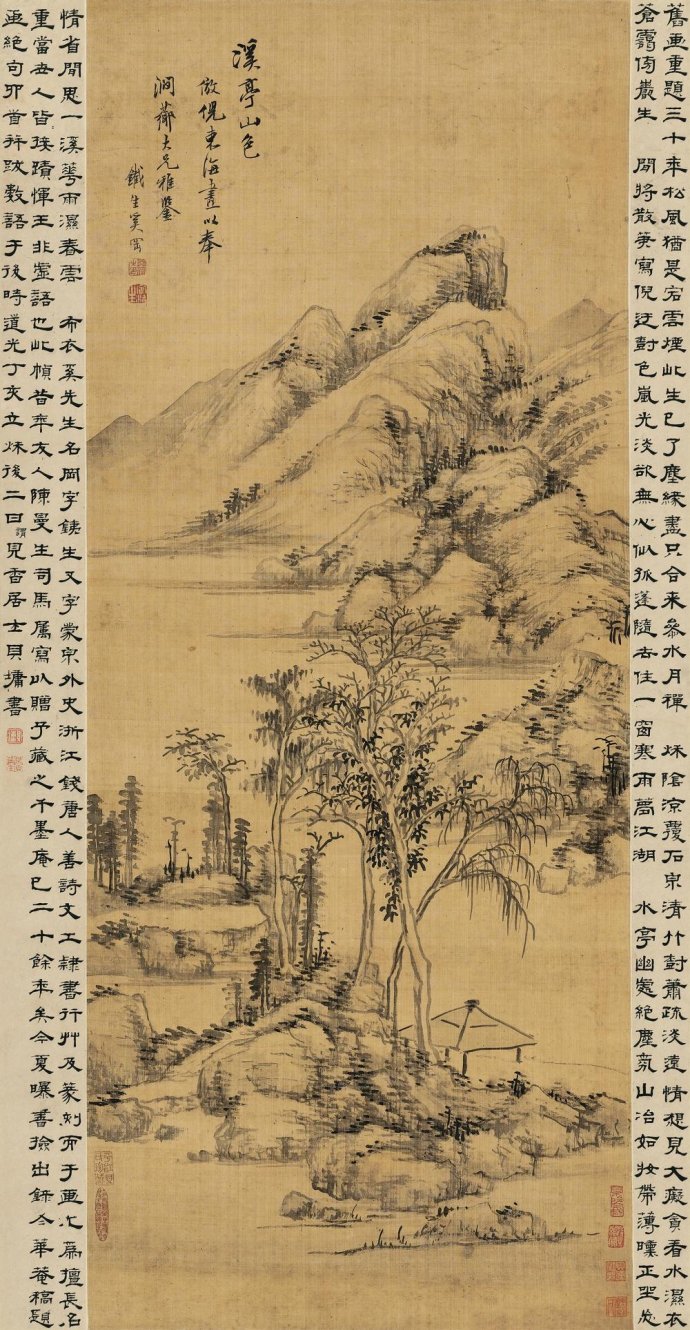 溪亭山色
倣倪東海畫以奉
澗薌大兄雅鑒
鐵生奚岡
舊画重題三十年松風猶是宕雲煙此生已了塵緣盡只合来參水月禪 秌陰涼覆石泉清竹封蕭疏淡遠情想見大癡貪看水濕衣
蒼靄傍巖生 閒將散筆寫倪迂封色嵐光淡欲無心似孤蓬隨去住一窗寒雨萬江湖 水亭幽處絶塵氛山冶如妝帶薄曛正坐忘
情省閒思一溪蕐雨濕春雲 布衣奚先生名岡字鐵生又字蒙泉外史浙江錢唐人善詩文工隸書行艸及篆刻而于画尤為擅長名
重當世人皆珍蹟惲王非虛語也此幀昔年友人陳曼生司馬属寫以贈予藏之千墨庵已二十餘年矣今夏曝書撿出錄今華菴稿題
画絶句卯首并跋數語于後時道光丁亥立秌後二日識見香居士貝墉書